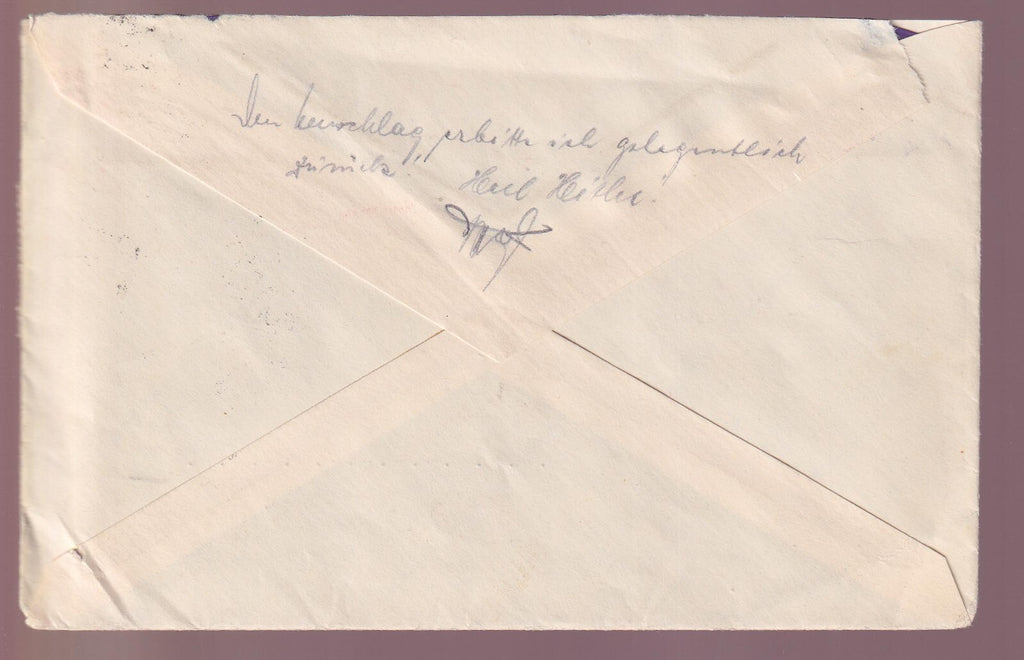 Den Umschlag erbitte ich gelegentlich
zurück. Heil Hitler!